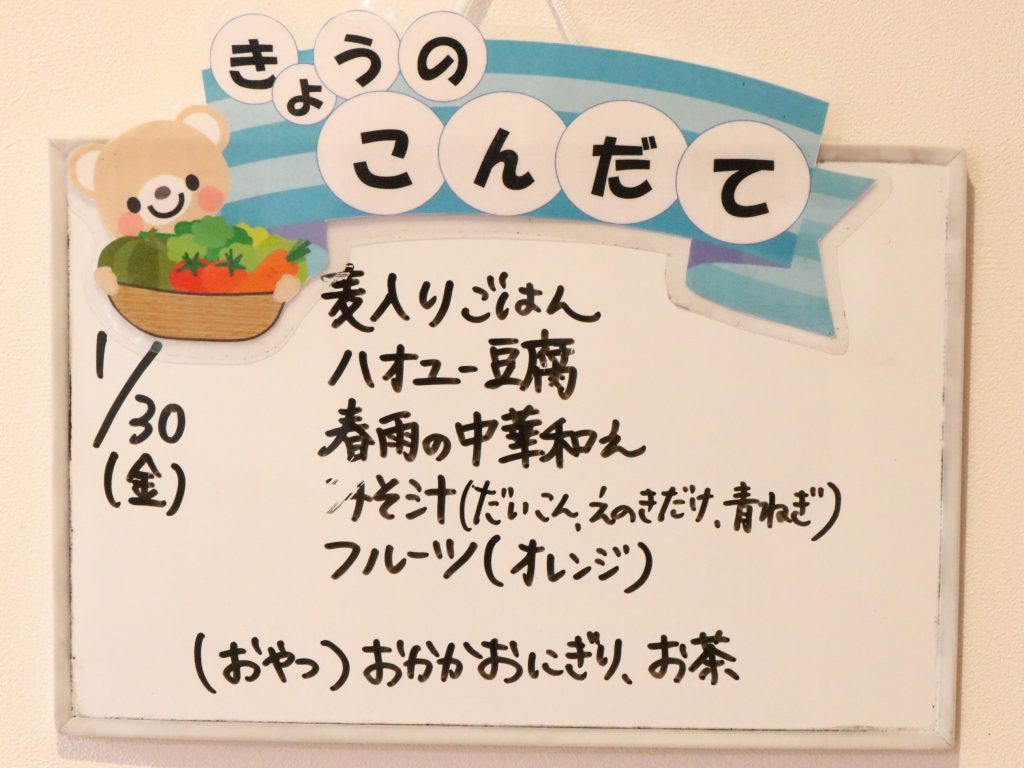 きょうの
こんだて
1/30
(金)
麦入りごはん
ハオユー豆腐
春雨の中華和え
みそ汁(だいこん、えのきだけ、青ねぎ)
フルーツ(オレンジ)
(おやつ)おかかおにぎり、お茶